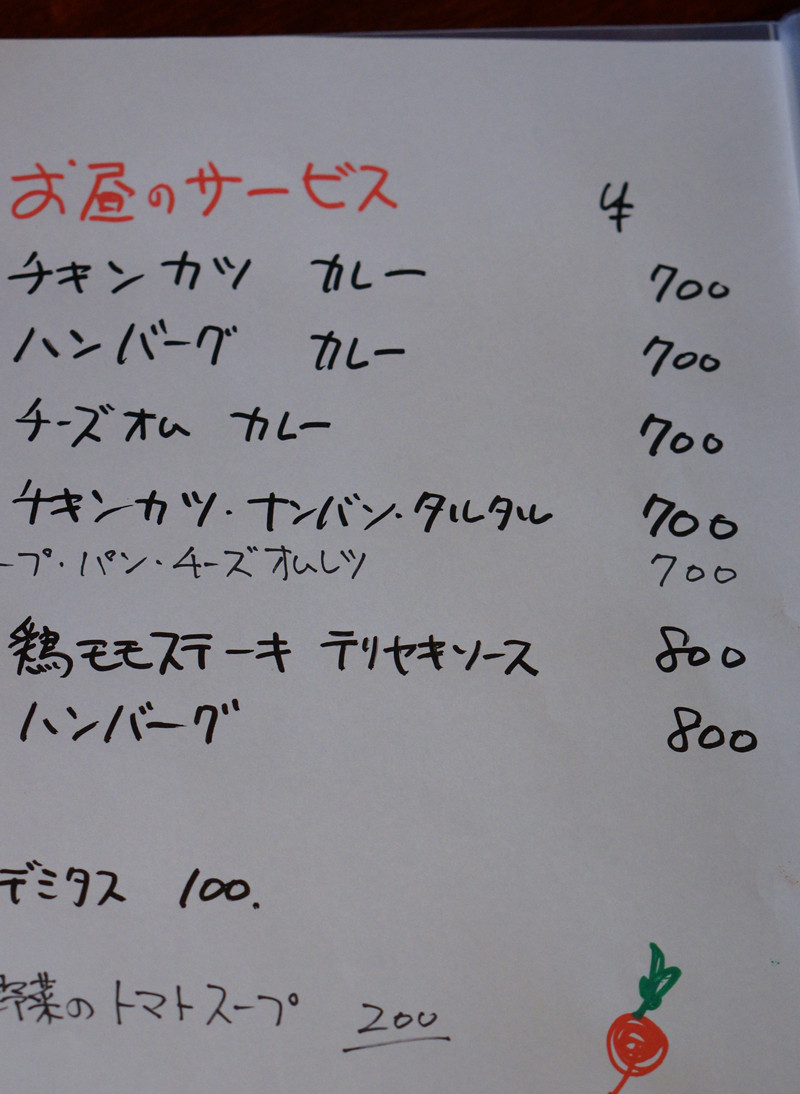 お昼のサービス ¥
チキンカツ カレー 700
ハンバーグ カレー 700
チーズオム カレー 700
チキンカツ・ナンバン・タルタル 700
ープ・パン・チーズオムレツ 700
鶏モモステーキ テリヤキソース 800
ハンバーグ 800
デミタス 100.
野菜のトマトスープ 200